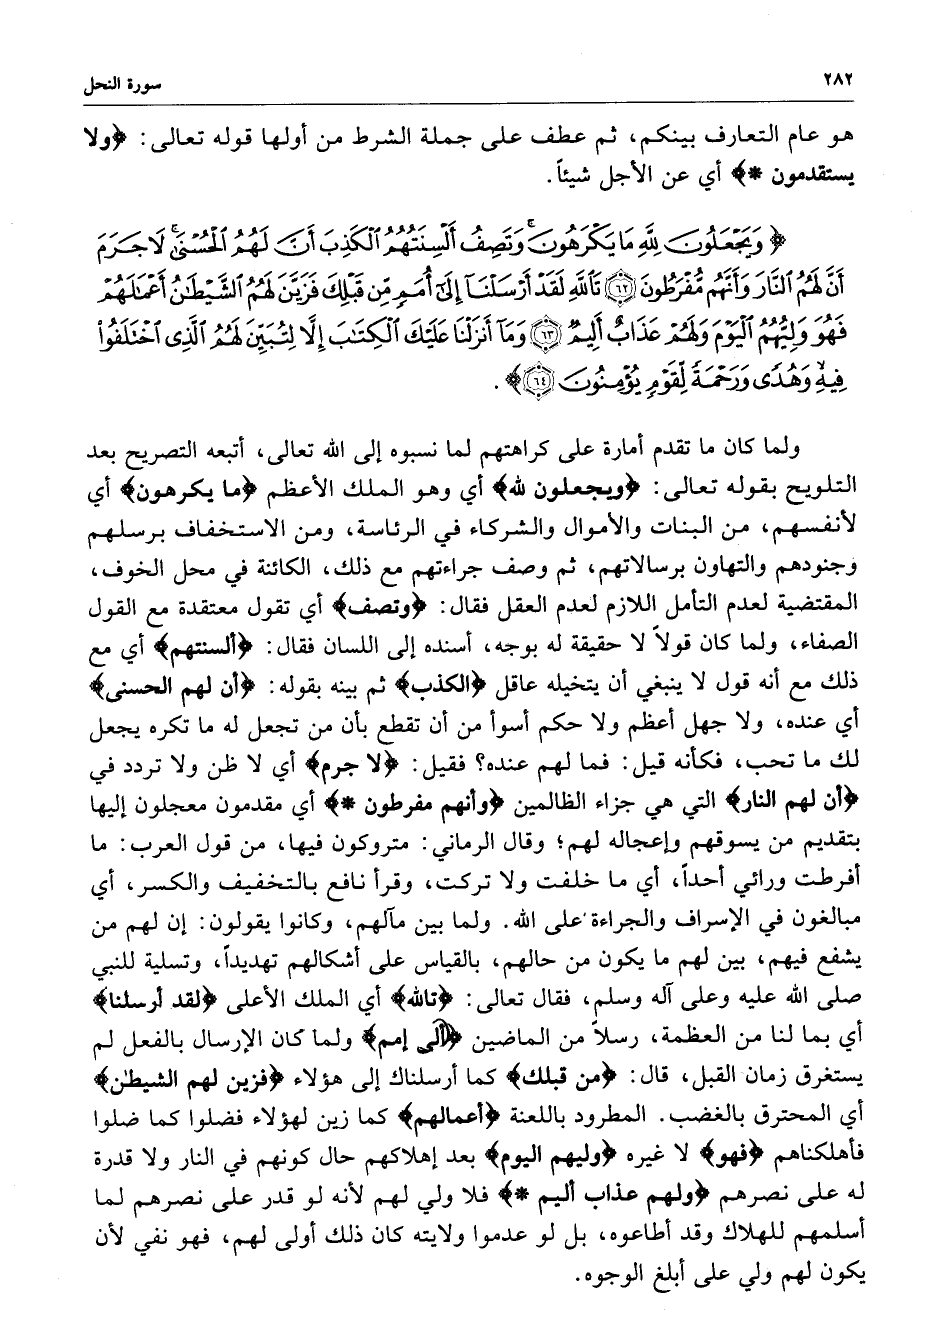 ٢٨٢ سورة النحل
هو عام التعارف بينكم، ثم عطف على جملة الشرط من أولها قوله تعالى: ﴿ولا
يستقدمون *﴾ أي عن الأجل شيئاً.
﴿ وَيَجْعَلُونَ لِلَّهِ مَا يَكْرَهُونَ ۚ وَتَصِفُ أَلْسِنَتُهُمُ ٱلْكَذِبَ أَنَّ لَهُمُ ٱلْحُسْنَىٰ ۚ لَا جَرَمَ
أَنَّ لَهُمُ ٱلنَّارَ وَأَنَّهُم مُّفْرَطُونَ ﴿٦٢﴾ تَٱللَّهِ لَقَدْ أَرْسَلْنَآ إِلَىٰٓ أُمَمٍ مِّن قَبْلِكَ فَزَيَّنَ لَهُمُ ٱلشَّيْطَٰنُ أَعْمَٰلَهُمْ
فَهُوَ وَلِيُّهُمُ ٱلْيَوْمَ وَلَهُمْ عَذَابٌ أَلِيمٌ ﴿٦٣﴾ وَمَآ أَنزَلْنَا عَلَيْكَ ٱلْكِتَٰبَ إِلَّا لِتُبَيِّنَ لَهُمُ ٱلَّذِى ٱخْتَلَفُوا۟
فِيهِ ۙ وَهُدًى وَرَحْمَةً لِّقَوْمٍ يُؤْمِنُونَ ﴿٦٤﴾ ﴾.
ولما كان ما تقدم أمارة على كراهتهم لما نسبوه إلى الله تعالى، أتبعه التصريح بعد
التلويح بقوله تعالى: ﴿ويجعلون لله﴾ أي وهو الملك الأعظم ﴿ما يكرهون﴾ أي
لأنفسهم، من البنات والأموال والشركاء في الرئاسة، ومن الاستخفاف برسلهم
وجنودهم والتهاون برسالاتهم، ثم وصف جراءتهم مع ذلك، الكائنة في محل الخوف،
المقتضية لعدم التأمل اللازم لعدم العقل فقال: ﴿وتصف﴾ أي تقول معتقدة مع القول
الصفاء، ولما كان قولاً لا حقيقة له بوجه، أسنده إلى اللسان فقال: ﴿ألسنتهم﴾ أي مع
ذلك مع أنه قول لا ينبغي أن يتخيله عاقل ﴿الكذب﴾ ثم بينه بقوله: ﴿أن لهم الحسنى﴾
أي عنده، ولا جهل أعظم ولا حكم أسوأ من أن تقطع بأن من تجعل له ما تكره يجعل
لك ما تحب، فكأنه قيل: فما لهم عنده؟ فقيل: ﴿لا جرم﴾ أي لا ظن ولا تردد في
﴿أن لهم النار﴾ التي هي جزاء الظالمين ﴿وأنهم مفرطون *﴾ أي مقدمون معجلون إليها
بتقديم من يسوقهم وإعجاله لهم؛ وقال الرماني: متروكون فيها، من قول العرب: ما
أفرطت ورائي أحداً، أي ما خلفت ولا تركت، وقرأ نافع بالتخفيف والكسر، أي
مبالغون في الإسراف والجراءة على الله. ولما بين مآلهم، وكانوا يقولون: إن لهم من
يشفع فيهم، بين لهم ما يكون من حالهم، بالقياس على أشكالهم تهديداً، وتسلية للنبي
صلى الله عليه وعلى آله وسلم، فقال تعالى: ﴿تالله﴾ أي الملك الأعلى ﴿لقد أرسلنا﴾
أي بما لنا من العظمة، رسلاً من الماضين ﴿ألى إمم﴾ ولما كان الإرسال بالفعل لم
يستغرق زمان القبل، قال: ﴿من قبلك﴾ كما أرسلناك إلى هؤلاء ﴿فزين لهم الشيطن﴾
أي المحترق بالغضب. المطرود باللعنة ﴿أعمالهم﴾ كما زين لهؤلاء فضلوا كما ضلوا
فأهلكناهم ﴿فهو﴾ لا غيره ﴿وليهم اليوم﴾ بعد إهلاكهم حال كونهم في النار ولا قدرة
له على نصرهم ﴿ولهم عذاب أليم *﴾ فلا ولي لهم لأنه لو قدر على نصرهم لما
أسلمهم للهلاك وقد أطاعوه، بل لو عدموا ولايته كان ذلك أولى لهم، فهو نفي لأن
يكون لهم ولي على أبلغ الوجوه.